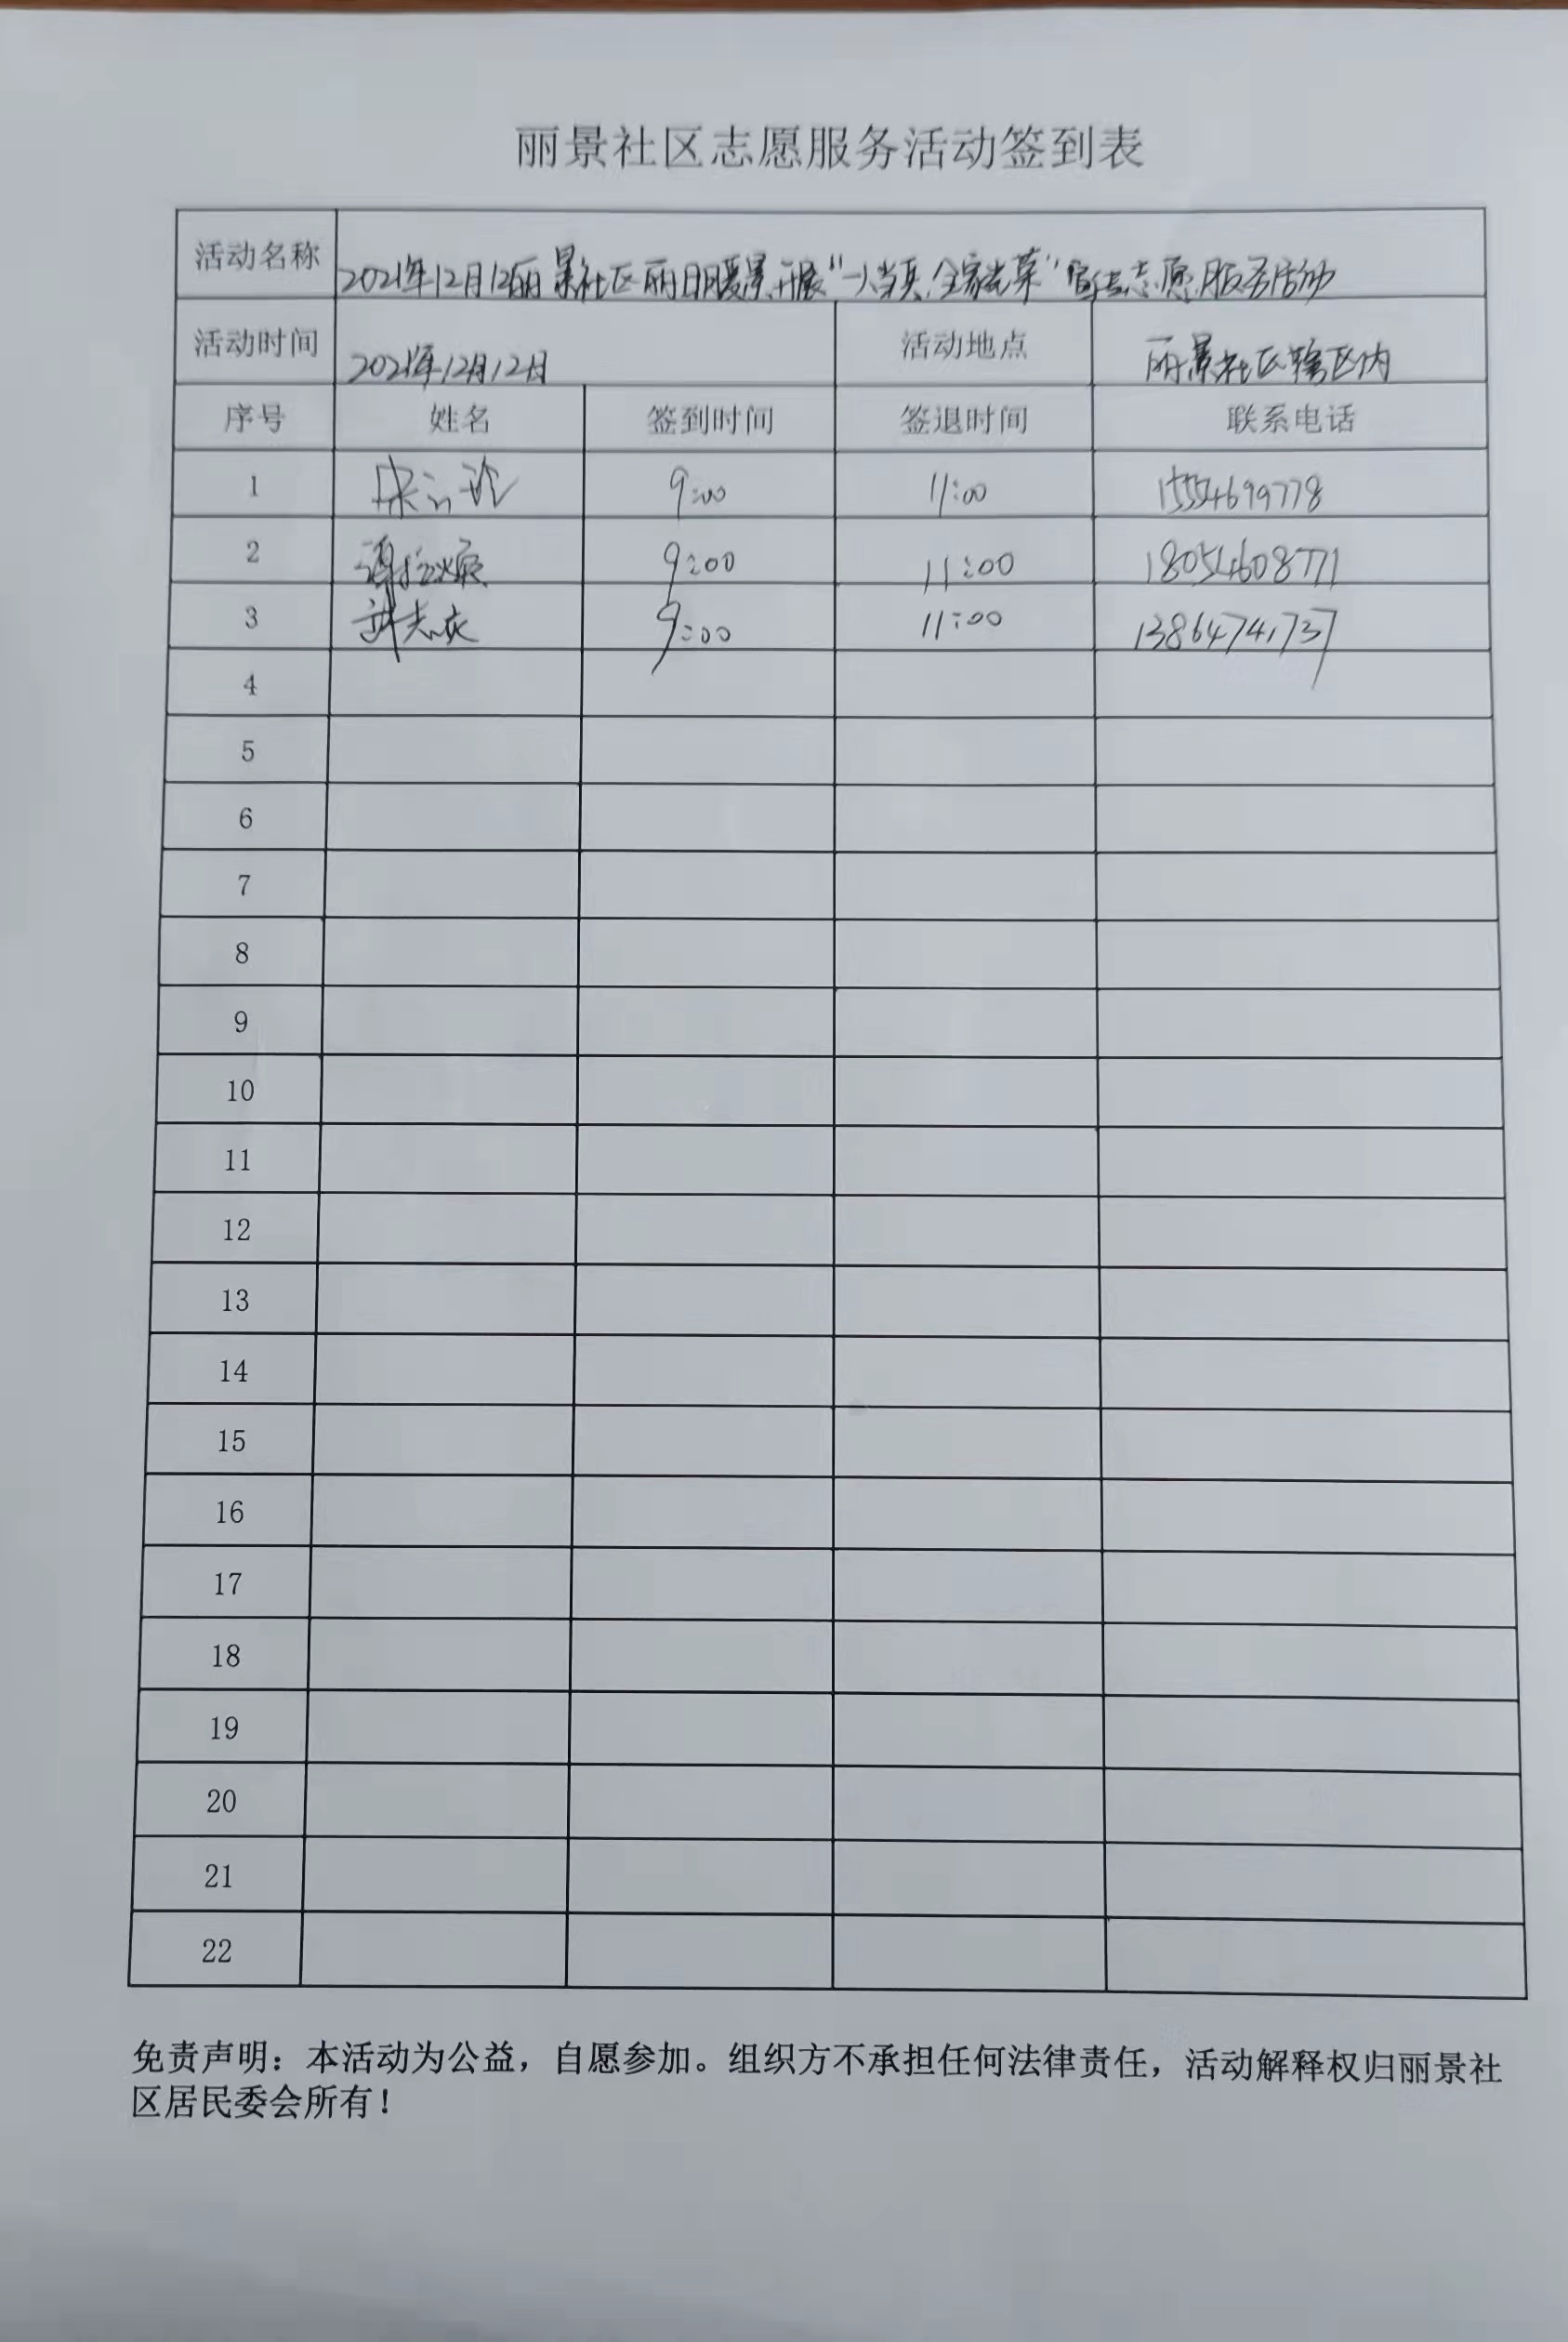 丽景社区志愿服务活动签到表
活动名称 2021年12月12丽景社区丽日暖景开展“一人当兵,全家光荣”宣传志愿服务活动
活动时间 2021年12月12日 活动地点 丽景社区辖区内
序号 姓名 签到时间 签退时间 联系电话
1 9:00 11:00 15554699778
2 9:00 11:00 18054608771
3 9:00 11:00 13864741737
4
5
6
7
8
9
10
11
12
13
14
15
16
17
18
19
20
21
22
免责声明：本活动为公益，自愿参加。组织方不承担任何法律责任，活动解释权归丽景社
区居民委会所有！